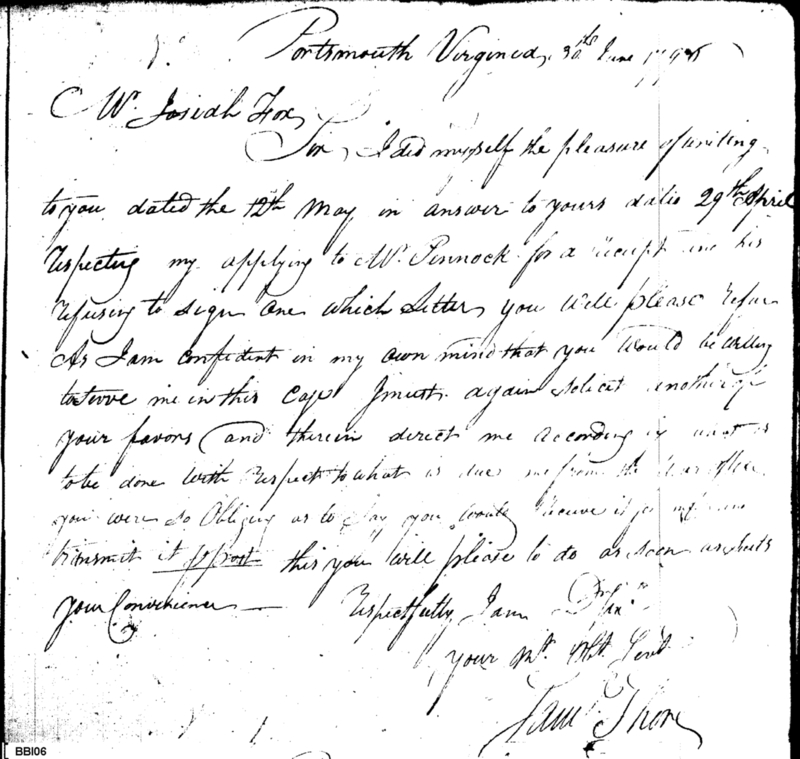 Portsmouth Virginia, 30th June
Mr. Josiah Fox,
Sir, I did myself the pleasure of writing
to you dated the 12th May in answer to yours dated 29th April
respecting my applying to Mr. Pennock for a receipt and his
refusing to sign one which Letter, you will please refer
As I am confident in my own mind that you would be willing
to serve me in this Case I must again solicit another of
your favors and therein direct me according what is
to be done with respect to what is due me from the War office
you were so Obliging as to Say you would receive it for me and
transmit it pr post this you will please to do as soon as suits
your Convenience — Respectfully I am Dr Sir
your Mt. Obt. Servt
Saml
BBI06